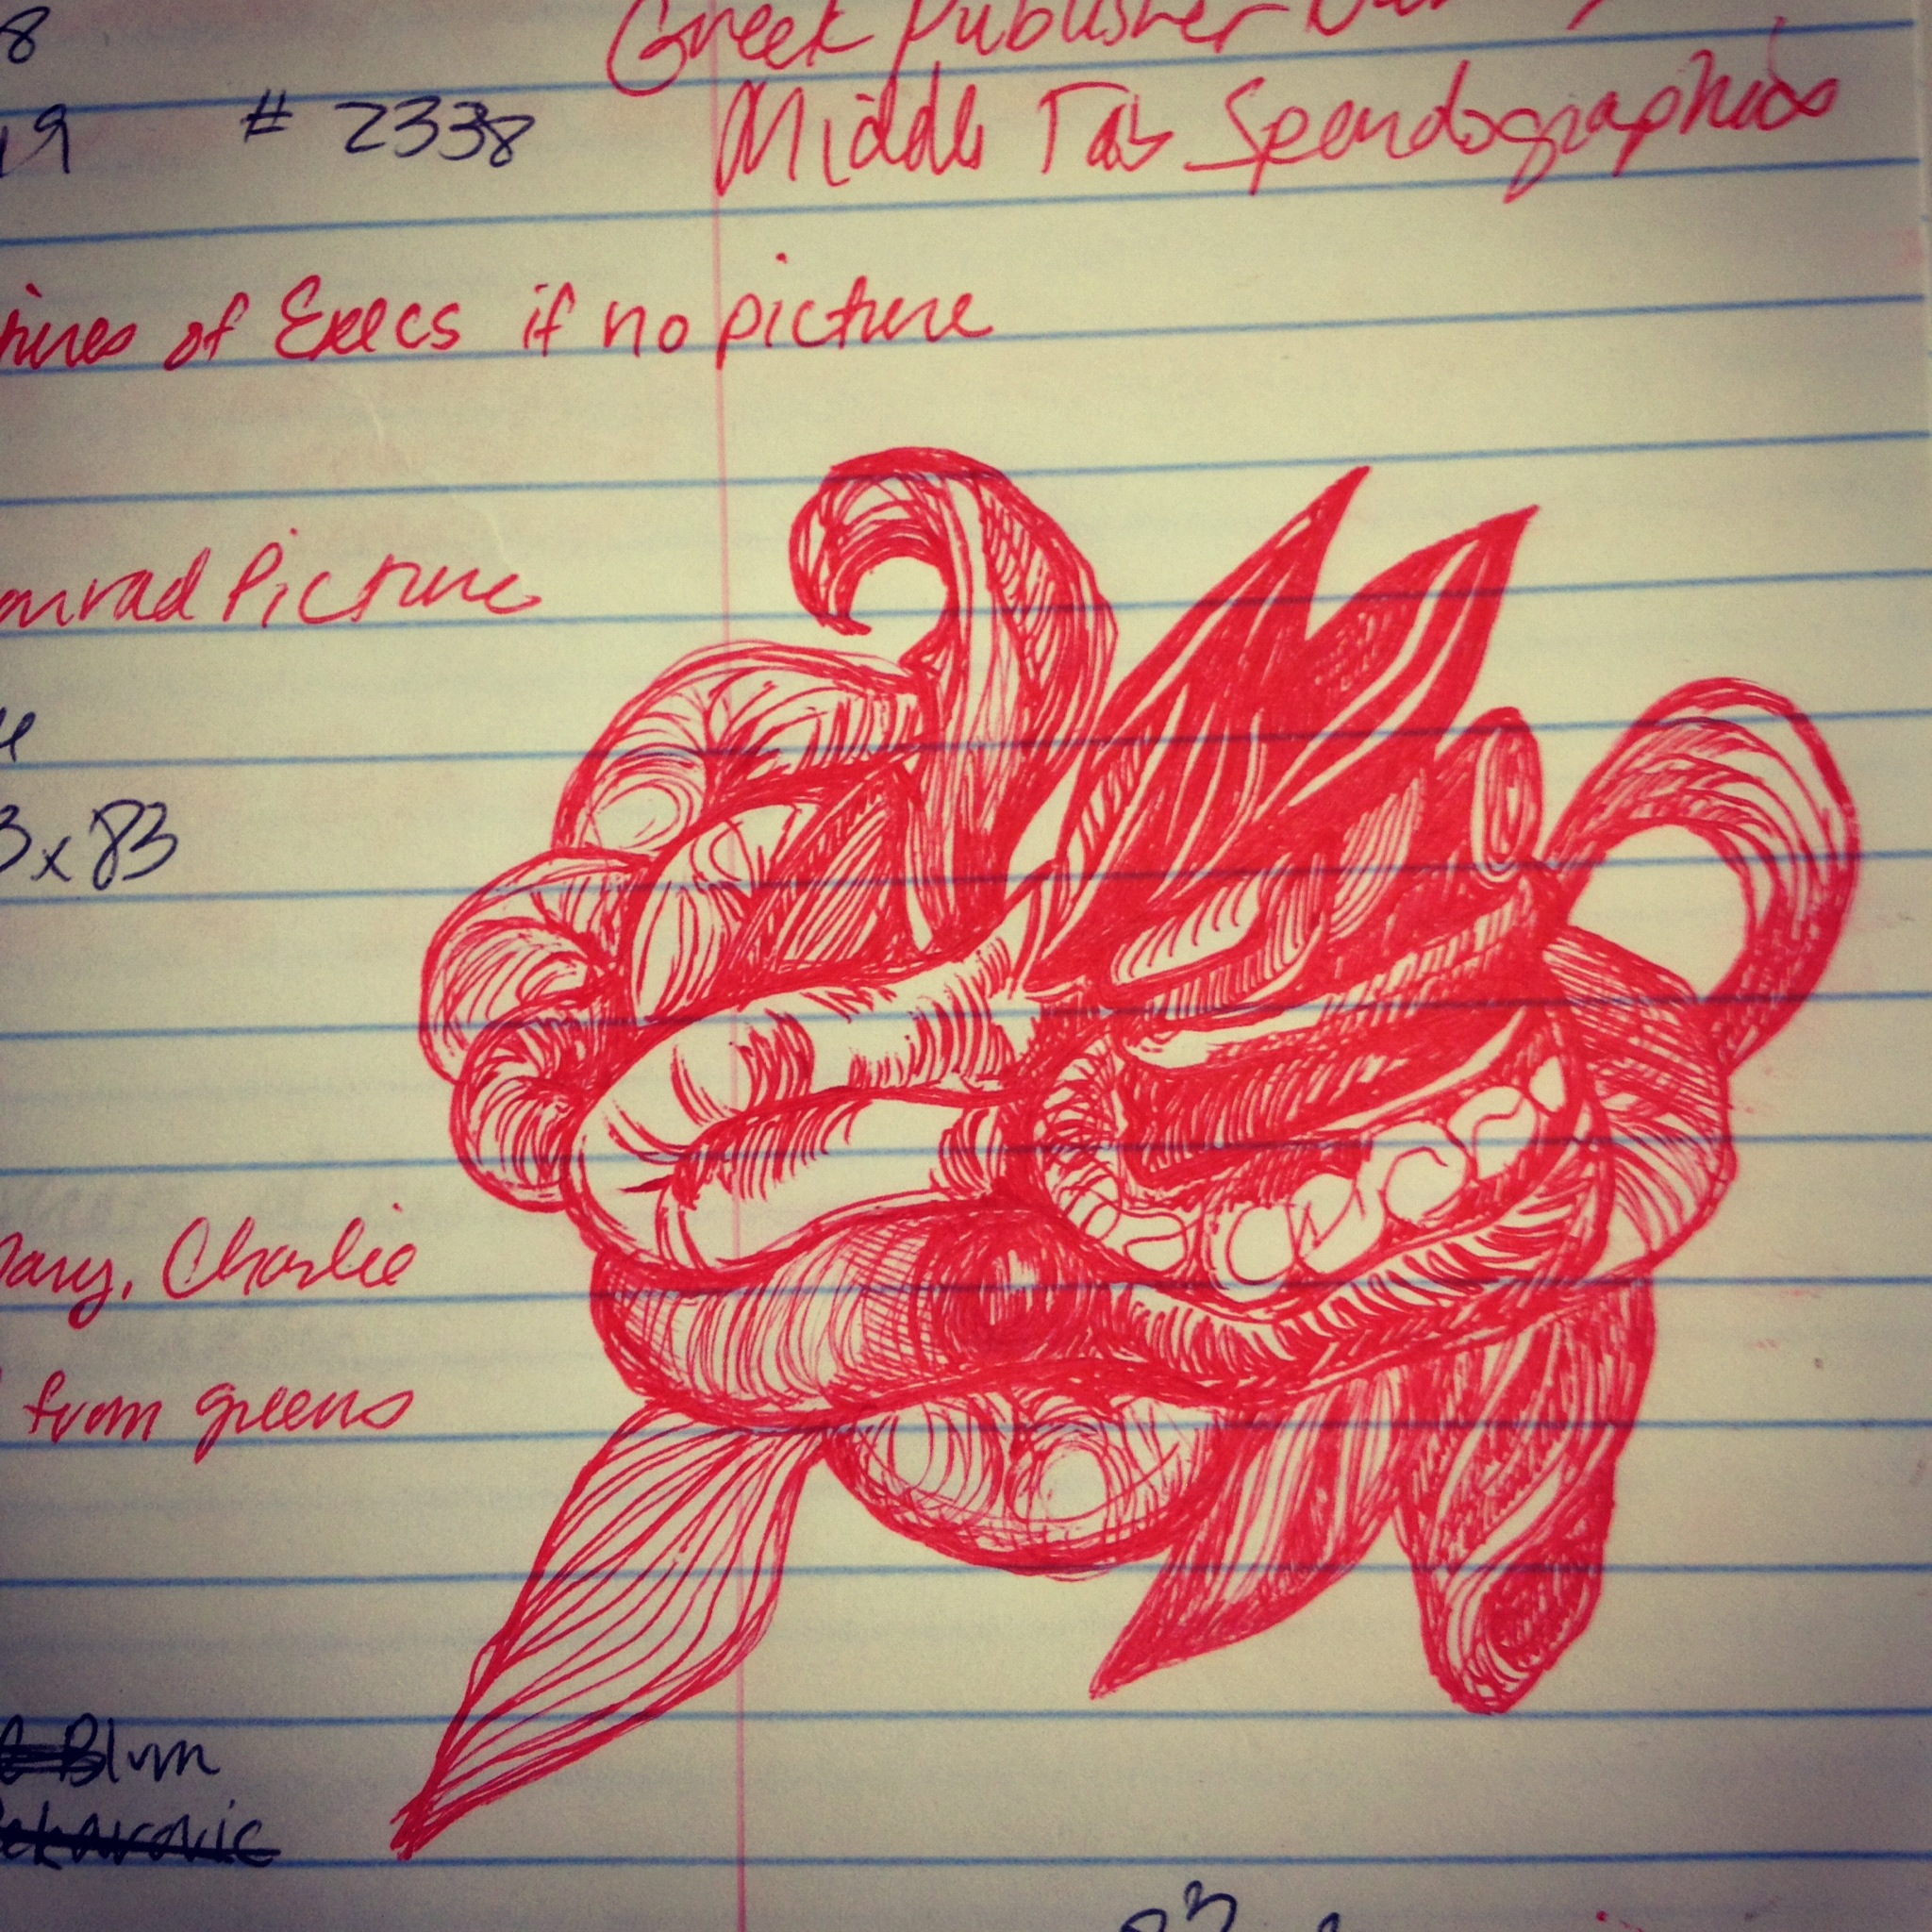 8
Greek Publisher
19 # 2338 Middle Tab Spendographics
tures of Execs if no picture
onrad Picture
3 x 83
Mary, Charlie
from greens
Blum